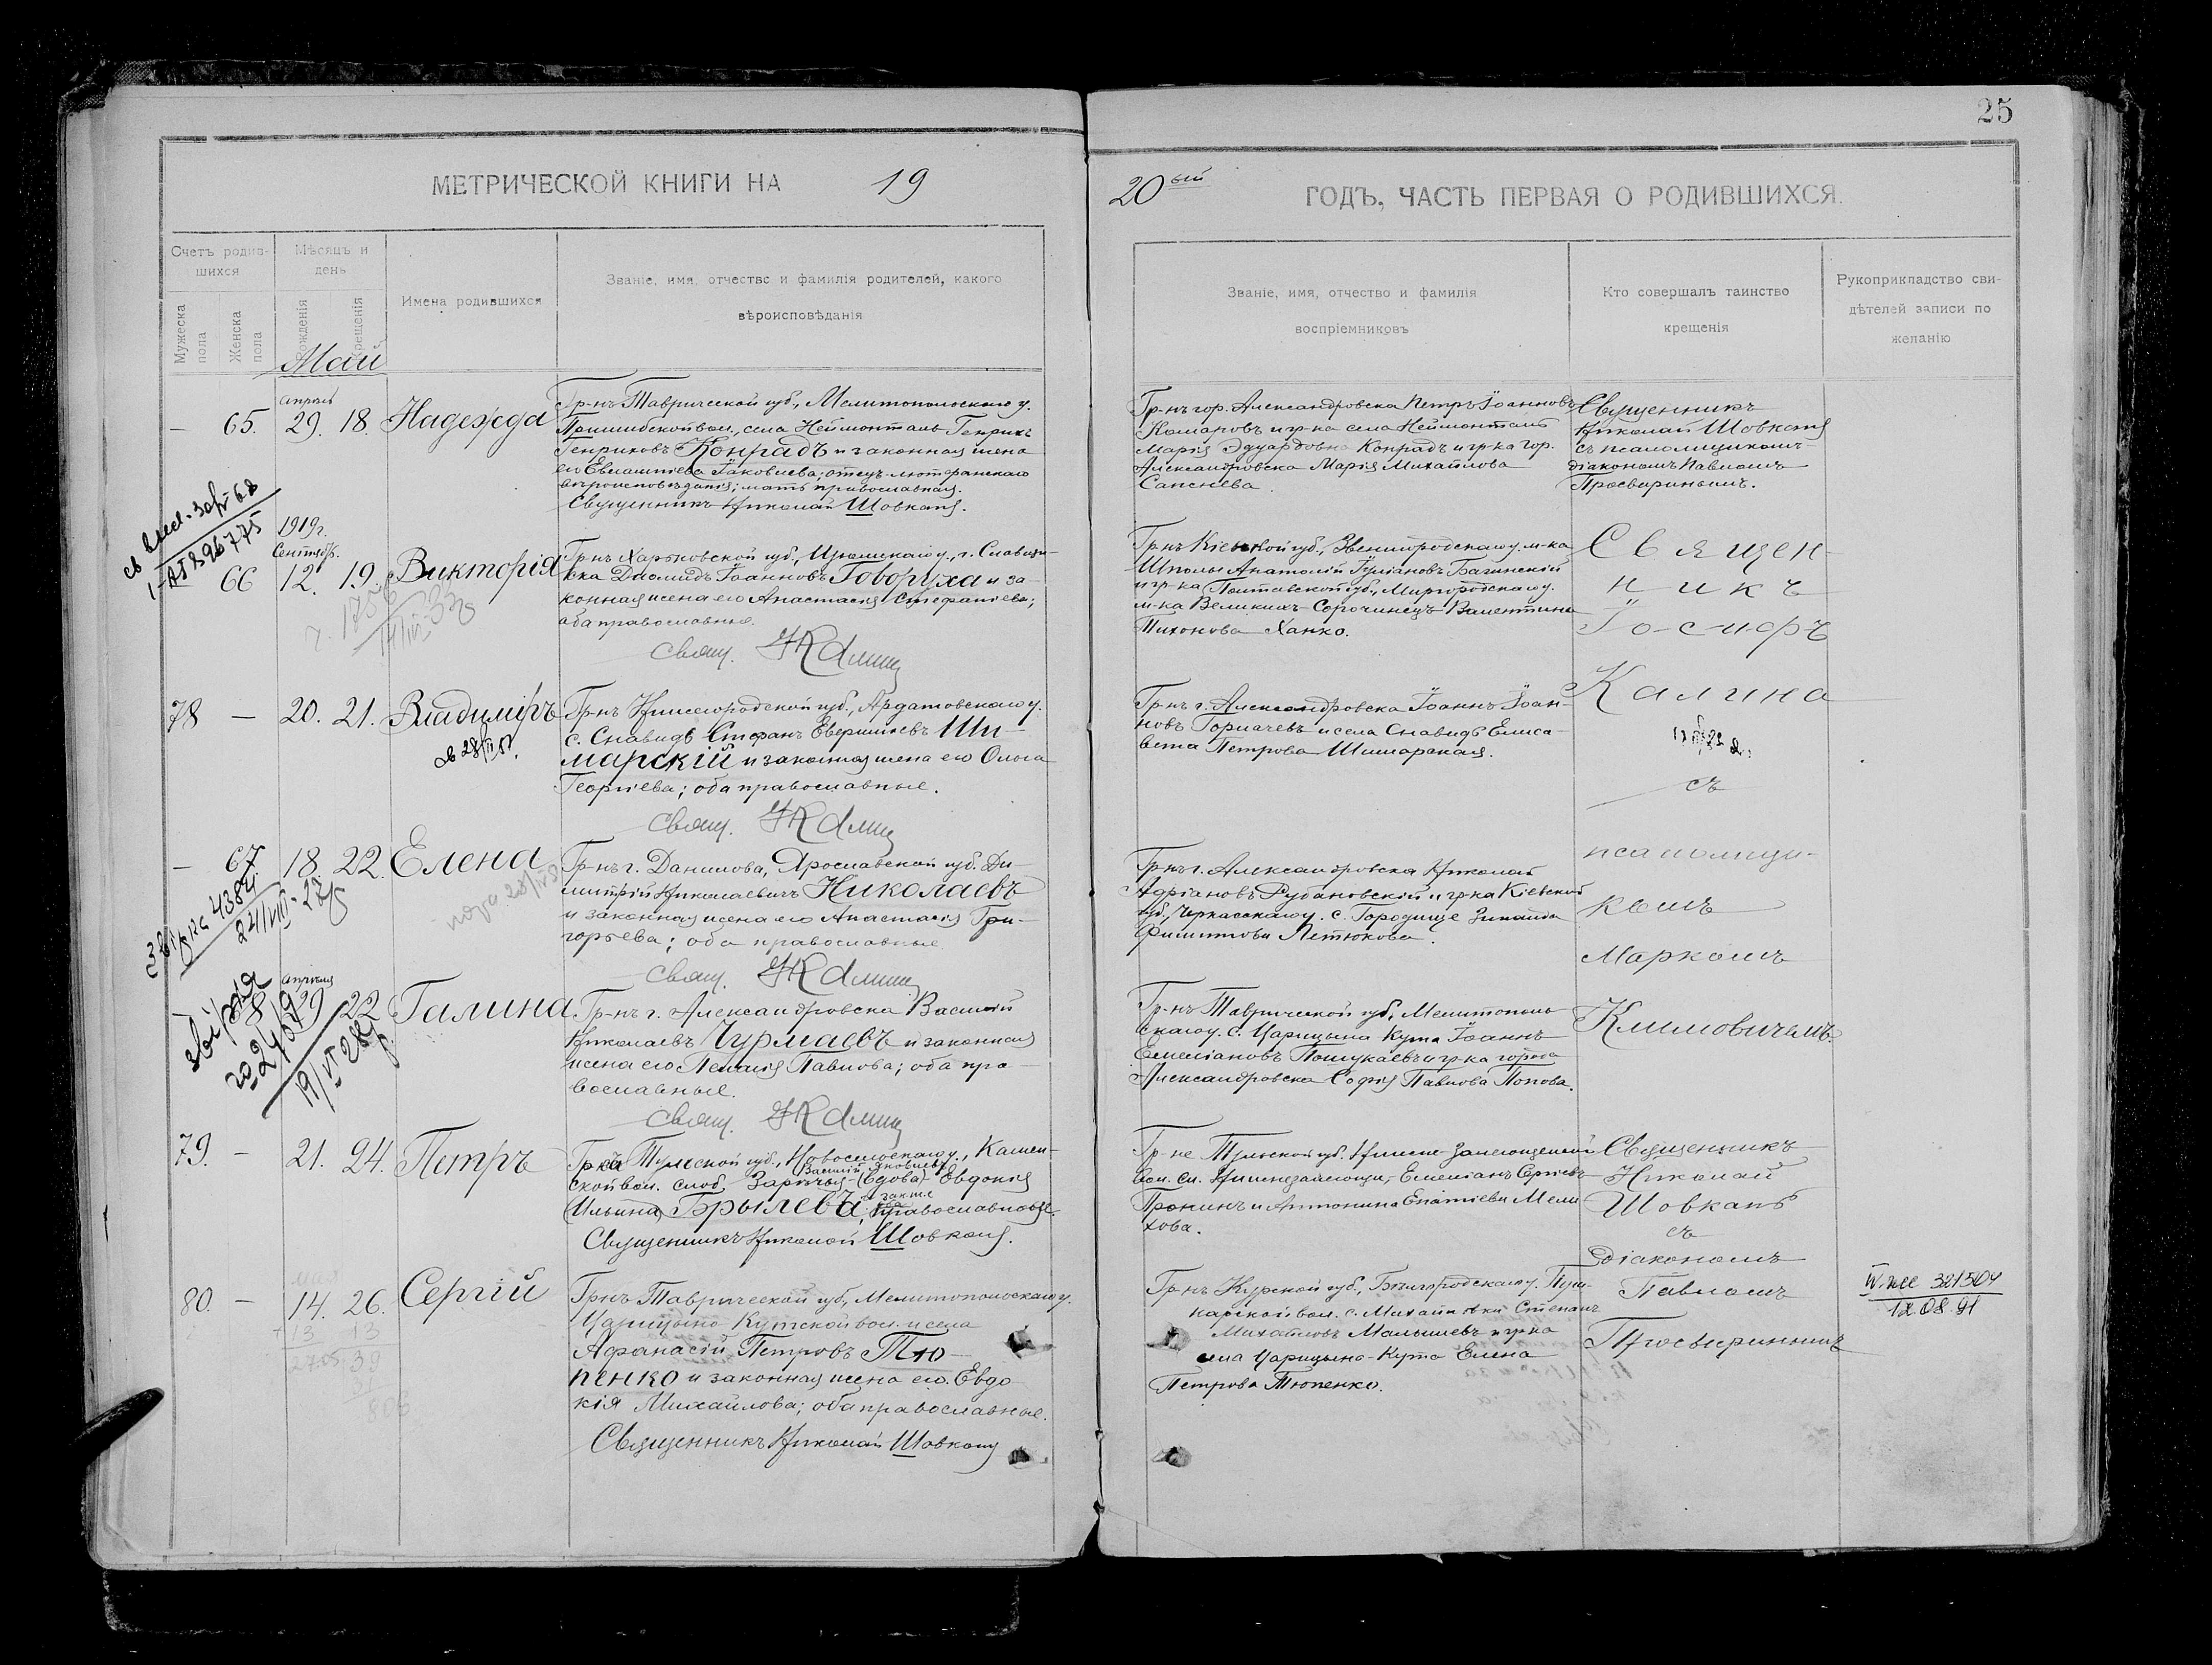 25
МЕТРИЧЕСКОЙ КНИГИ НА 19
20ый ГОДЪ, ЧАСТЬ ПЕРВАЯ О РОДИВШИХСЯ.
Счетъ родив-
шихся
Мужеска пола
Женска пола
Мѣсяцъ и
день
рожденія
крещенія
Имена родившихся
Званіе, имя, отчество и фамилія родителей, какого
вѣроисповѣданія
Званіе, имя, отчество и фамилія
воспріемниковъ
Кто совершалъ таинство
крещенія
Рукоприкладство сви-
дѣтелей записи по
желанію
Май
апрѣль
— 65. 29. 18. Надежда
Гр-нъ Таврической губ., Мелитопольскаго у.
Пришибской вол., села Неймонталь Генрихъ
Генриховъ Конрадъ и законная жена
его Евлампіева Іаковлева; отецъ лютеранскаго
вѣроисповѣданія; мать православная.
Священникъ Николай Шовкопляс.
Гр-нъ гор. Александровска Петръ Іоанновъ
Комаровъ и гр-ка села Неймонталь
Марія Эдуардовна Конрадъ и гр-ка гор.
Александровска Марія Михайлова
Сапснева.
Священникъ
Николай Шовкопляс
съ псаломщикомъ
діакономъ Павломъ
Просвиринымъ.
1919г.
Сентябр.
66 12. 19. Викторія
Гр-нъ Харьковской губ., Изюмскаго у., г. Славян-
ска Діомидъ Іоанновъ Говоруха и за-
конная жена его Анастасія Стефаніева;
оба православные.
Свящ. ІКалина
Гр-нъ Кіевской губ., Звенигородскаго у. м-ка
Шполы Анатолій Іуліановъ Багинскій
и гр-ка Полтавской губ., Миргородскаго у.
м-ка Великихъ-Сорочинецъ Валентина
Тихонова Ханко.
Священ-
никъ
Іосифъ
Калина
съ
псаломщи-
комъ
Маркомъ
Климовичемъ.
78 — 20. 21. Владиміръ
Гр-нъ Нижегородской губ., Ардатовскаго у.
с. Снавидь Стефанъ Евер
Ши-
марскій и законная жена его Ольга
Георгіева; оба православные.
Свящ. ІКалина
Гр-нъ г. Александровска Іоаннъ Іоан-
новъ Горпачевъ и села Снавидь Елиса-
вета Петрова Шимарская.
— 67 18. 22. Елена
Гр-нъ г. Данилова, Ярославской губ. Ди-
митрій Николаевичъ Николаевъ
и законная жена его Анастасія Гри-
горьева; оба православные
Свящ. ІКалина
Гр-нъ г. Александровска Николай
Адріановъ Рубановскій и гр-ка Кіевской
губ., Черкасскаго у. с. Городище Зинаида
Филиппова Петюкова.
4384
24/VIII-27
апрѣля
68 29 22 Галина
Гр-нъ г. Александровска Василій
Николаевъ Чурмаевъ и законная
жена его Пелагія Павлова; оба пра-
вославные.
Свящ. ІКалина
Гр-нъ Таврической губ., Мелитополь-
скаго у. с. Царицына Кута Іоаннъ
Емеліановъ Пошукаевъ и гр-ка города
Александровска Софія Павлова Попова.
79. — 21. 24. Петръ
Гр-ка Тульской губ., Новосильскаго у., Камен-
ской вол. слоб. Заречья (вдова) Евдокія
Ильина Брылева, православные.
Священникъ Николай Шовкопляс.
Гр-не Тульской губ. Нижне-Залегощенской
вол. сл. Нижнезалегощи, Емеліанъ Сергіевъ
Пронинъ и Антонина Ипатіева Мели-
хова.
Священникъ
Николай
Шовкапл
съ
діакономъ
Павломъ
Просвиринымъ
мая
80. — 14. 26. Сергій
Гр-нъ Таврической губ., Мелитопольскаго у.
Царицыно-Кутской вол. и села
Афанасій Петровъ Тю-
пенко и законная жена его Евдо-
кія Михайлова; оба православные.
Священникъ Николай Шовкопляс
Гр-нъ Курской губ., Бѣлгородскаго у. Пуш-
карской вол. с. Михайловки Степанъ
Михайловъ Малышевъ и гр-ка
села Царицыно-Кута Елена
Петрова Тюпенко.
321504
12.08.91